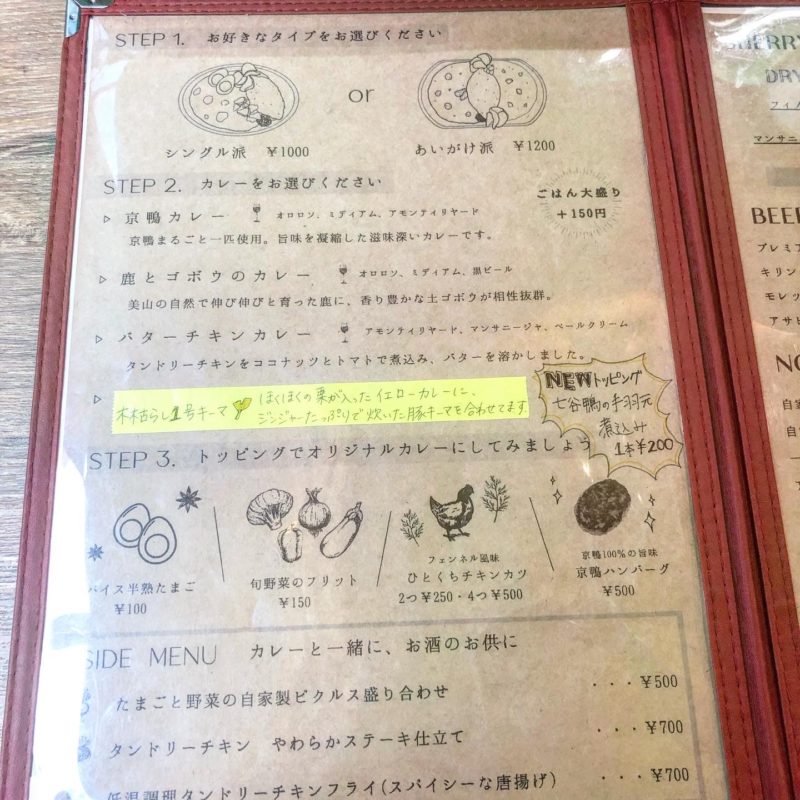 STEP 1. お好きなタイプをお選びください
or
シングル派 ¥1000
あいがけ派 ¥1200
STEP 2. カレーをお選びください
ごはん大盛り
+150円
▷ 京鴨カレー オロロソ、ミディアム、アモンティリヤード
京鴨まるごと一匹使用。旨味を凝縮した滋味深いカレーです。
▷ 鹿とゴボウのカレー オロロソ、ミディアム、黒ビール
美山の自然で伸び伸びと育った鹿に、香り豊かな土ゴボウが相性抜群。
▷ バターチキンカレー アモンティリヤード、マンサニージャ、ペールクリーム
タンドリーチキンをココナッツとトマトで煮込み、バターを溶かしました。
▷ 木枯らし1号キーマ ほくほくの栗が入ったイエローカレーに、
ジンジャーたっぷりで炊いた豚キーマを合わせてます
NEWトッピング
七谷鴨の手羽元
煮込み
1本¥200
STEP 3. トッピングでオリジナルカレーにしてみましょう
パイス半熟たまご
¥100
旬野菜のフリット
¥150
フェンネル風味
ひとくちチキンカツ
2つ¥250・4つ¥500
京鴨100%の旨味
京鴨ハンバーグ
¥500
SIDE MENU カレーと一緒に、お酒のお供に
たまごと野菜の自家製ピクルス盛り合わせ ・・・¥500
タンドリーチキン やわらかステーキ仕立て ・・・¥700
低温調理タンドリーチキンフライ(スパイシーな唐揚げ) ・・・¥700
SHERRY
DRY
フィノ
マンサニ
BEER
プレミア
キリン
モレッ
アサヒ
NO
自家
自